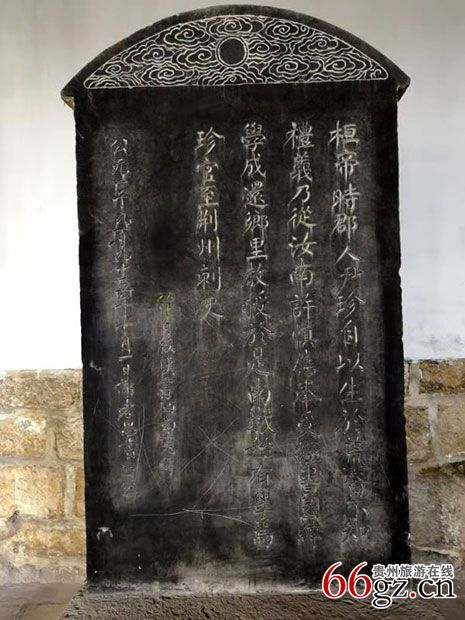 桓帝時郡人尹珍自以生於荒裔不知
禮義乃從汝南許慎應奉受經書圖緯
學成還鄉里教授於是南域始有學焉
珍官至荊州刺史
後漢書
公元一千九百九十
年 月一日
貴州旅游在线
66gz.cn